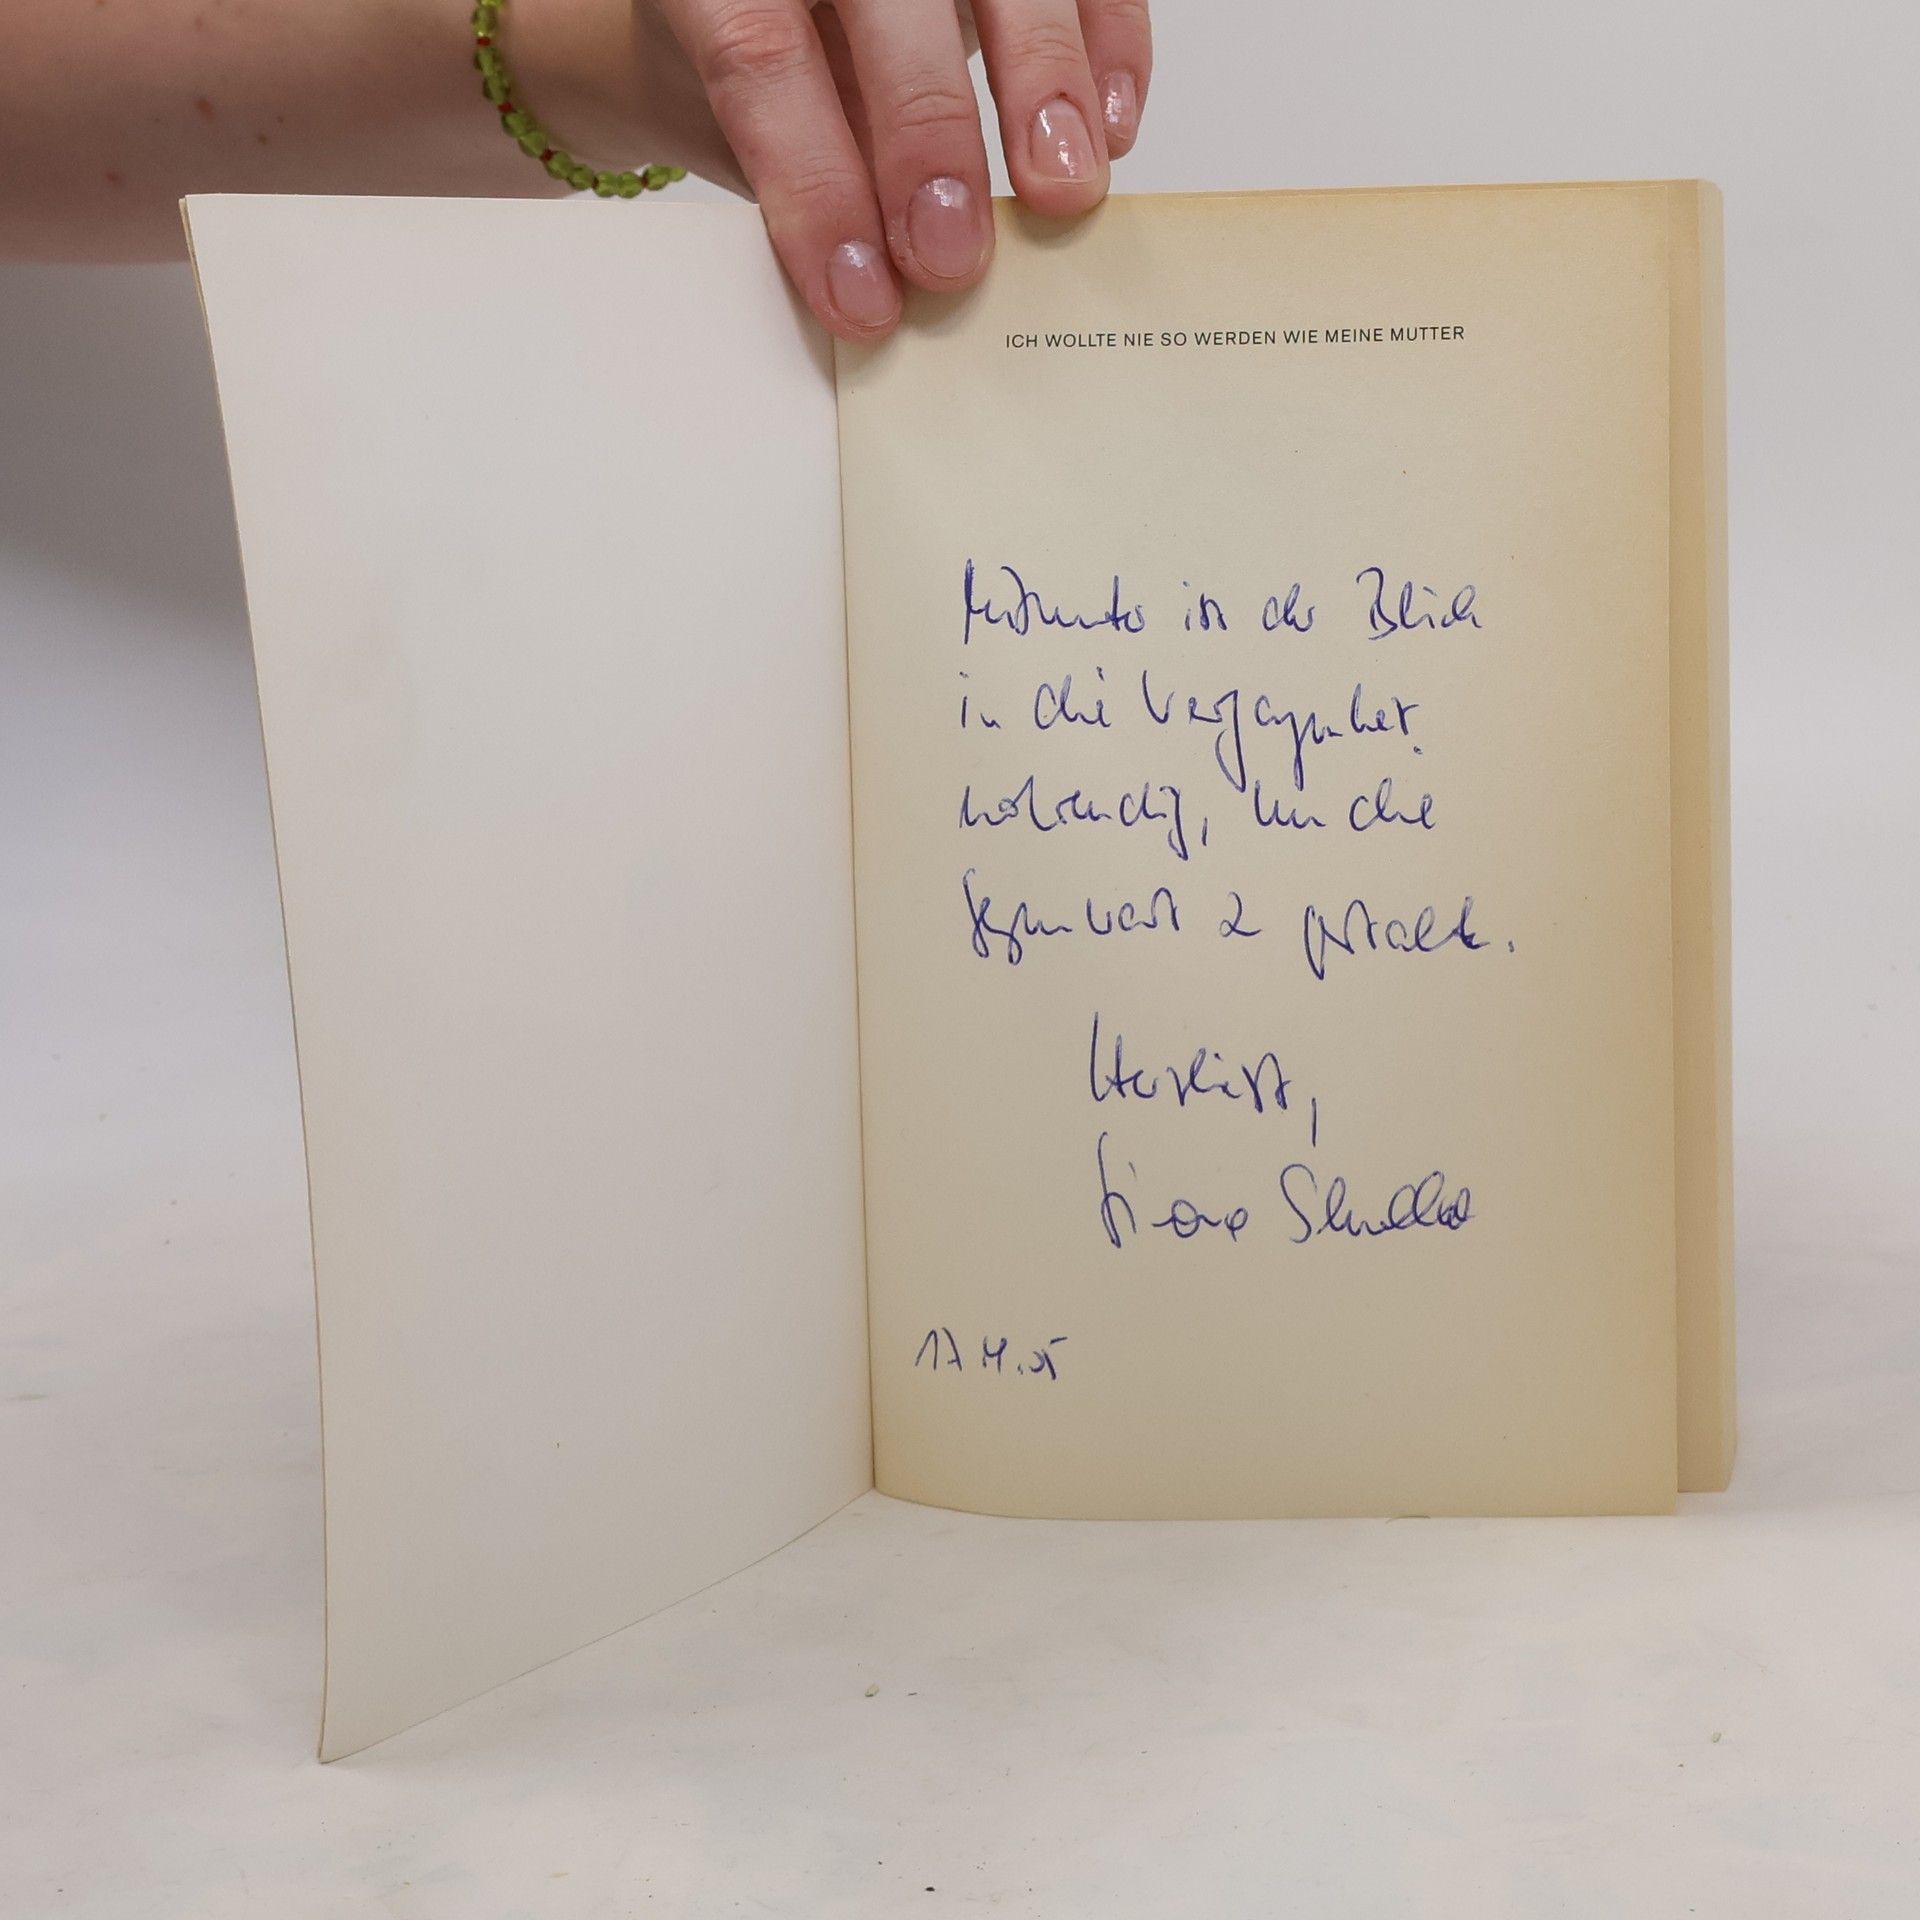 ICH WOLLTE NIE SO WERDEN WIE MEINE MUTTER
Mitunter ist der Blick
in die Vergangenheit
notwendig, um die
Gegenwart zu gestalten.
Herzlichst,
17.4.05